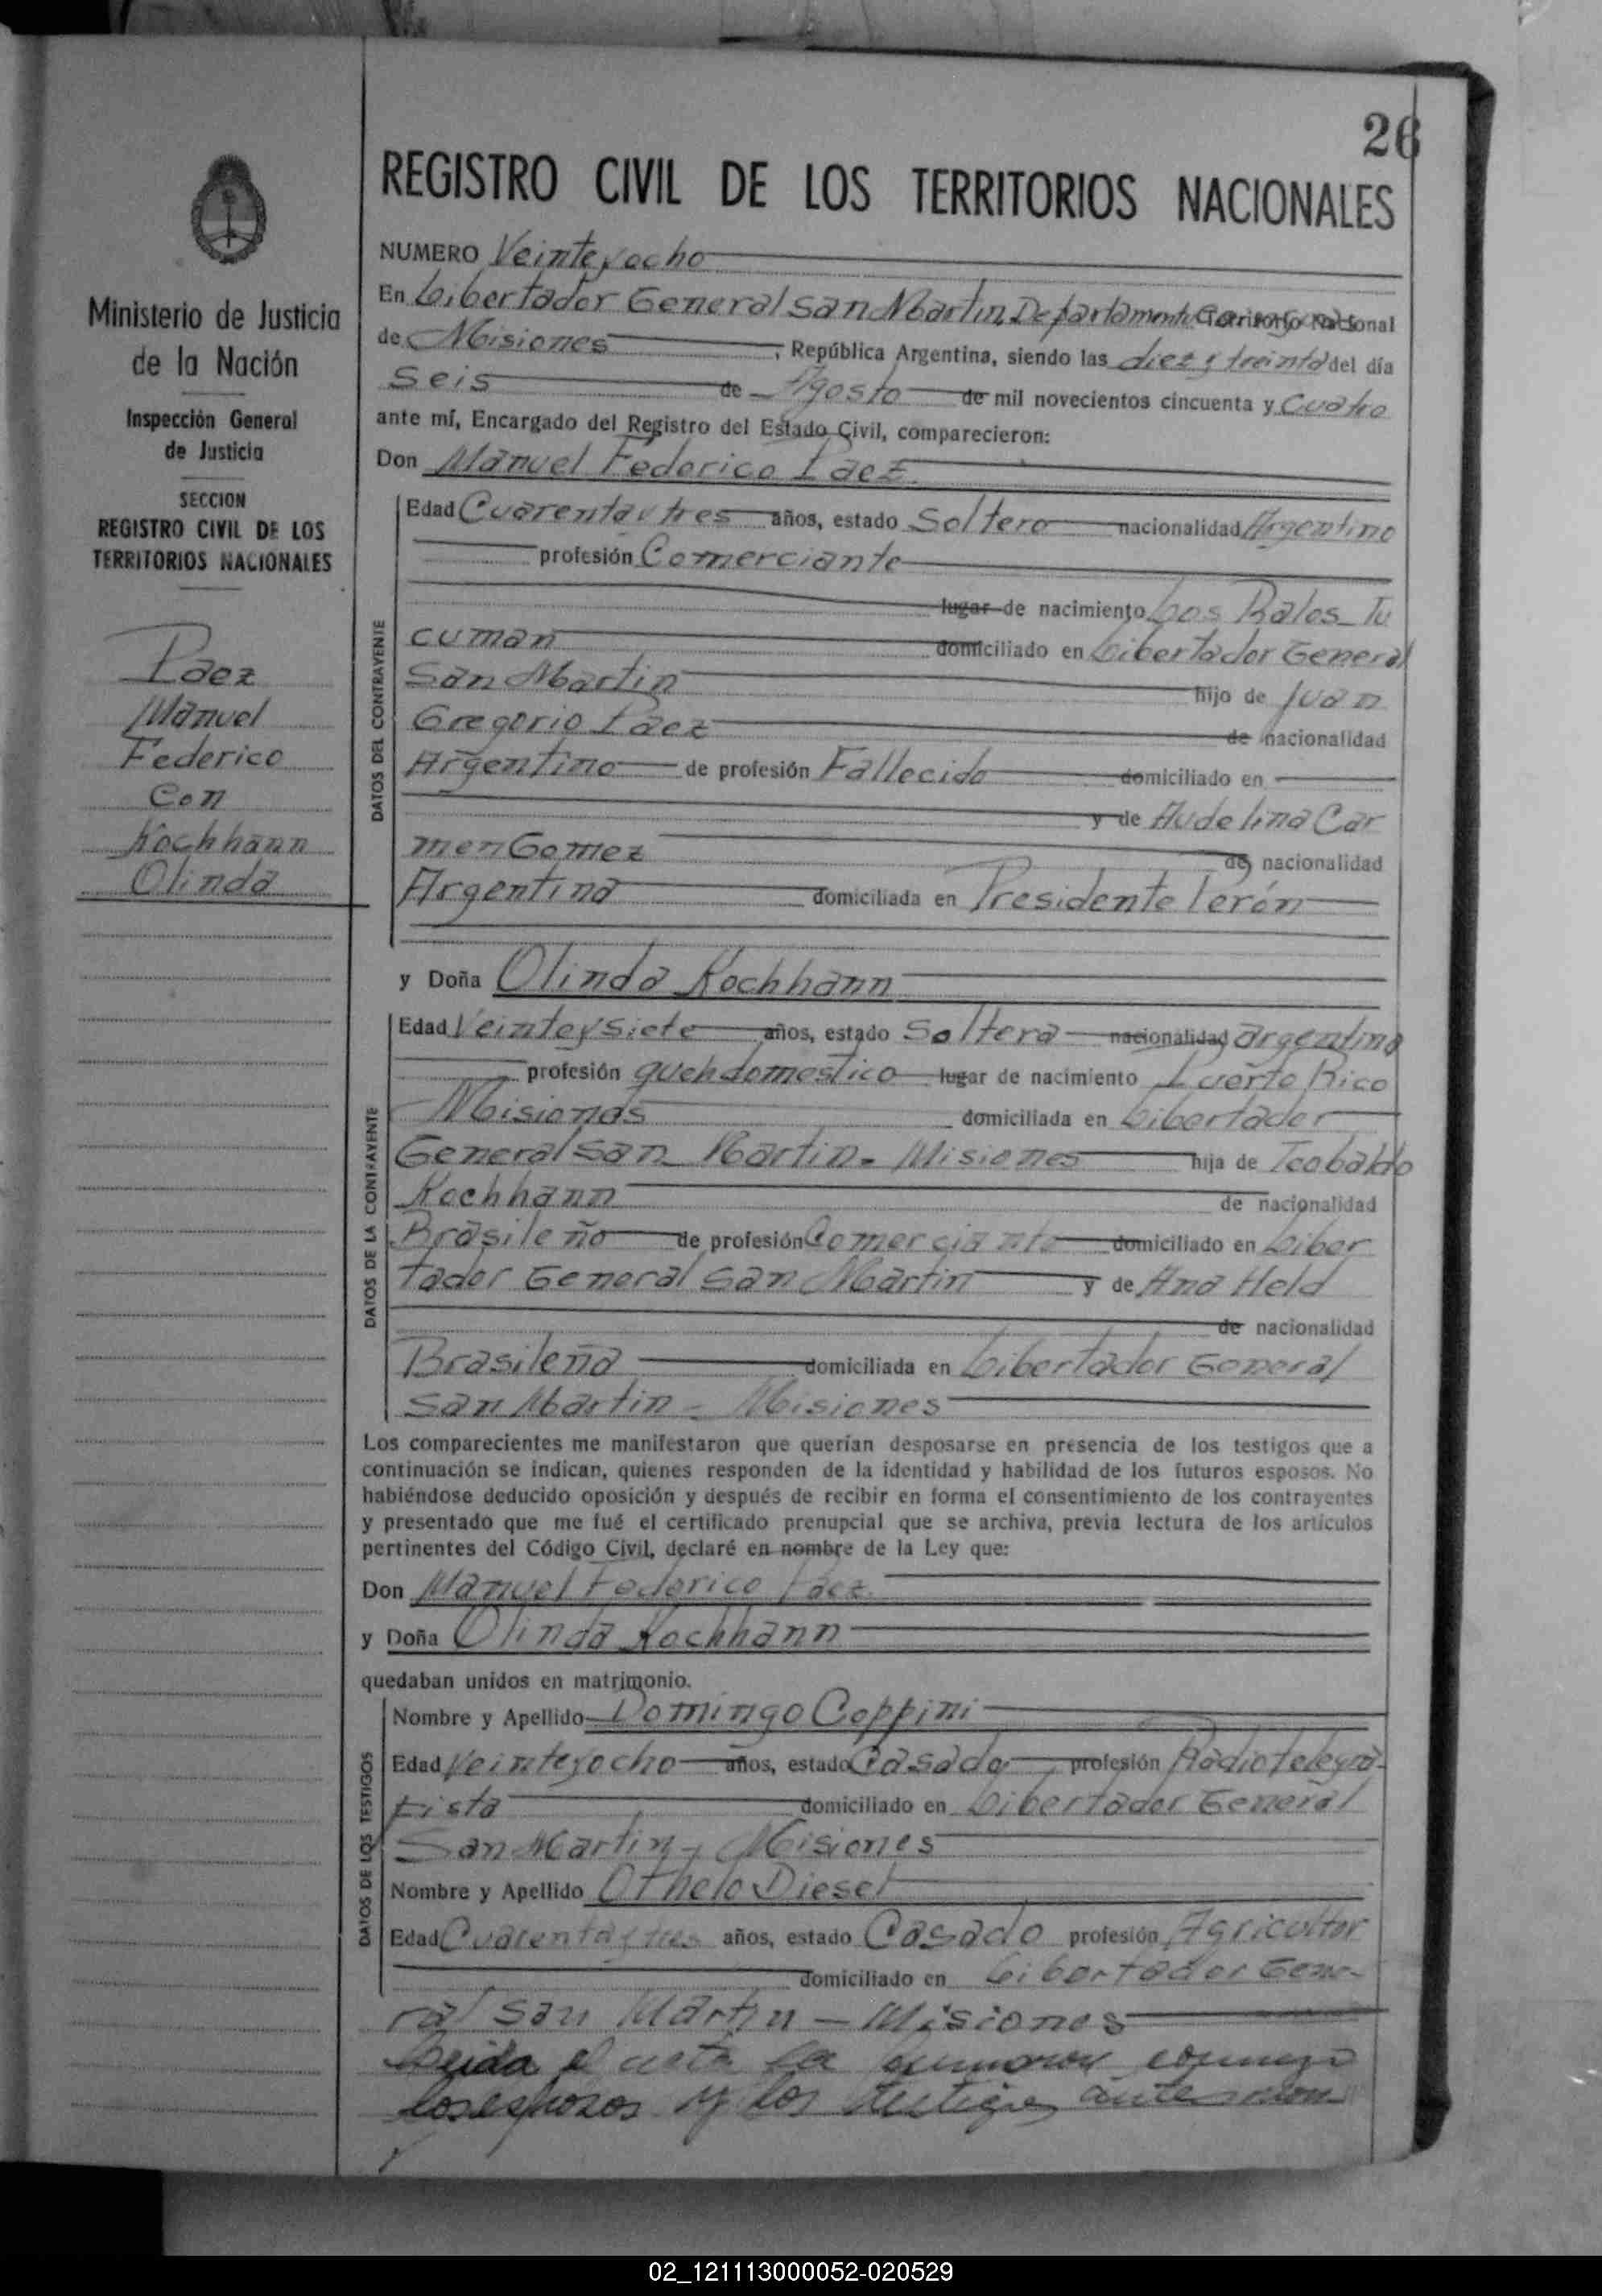 26
REGISTRO CIVIL DE LOS TERRITORIOS NACIONALES
Ministerio de Justicia
de la Nación
Inspección General
de Justicia
SECCION
REGISTRO CIVIL DE LOS
TERRITORIOS NACIONALES
Paez
Manuel
Federico
Con
Kochhann
Olinda
NUMERO Veinteyocho
En Libertador General San Martin, Departamento Territorio Nacional
de Misiones, República Argentina, siendo las diez y treinta del día
Seis de Agosto de mil novecientos cincuenta y Cuatro
ante mí, Encargado del Registro del Estado Civil, comparecieron:
Don Manuel Federico Paez
DATOS DEL CONTRAYENTE
Edad Cuarentaytres años, estado Soltero nacionalidad Argentino
profesión Comerciante
lugar de nacimiento Los Ralos Tu
cuman domiciliado en Libertador General
San Martin hijo de Juan
Gregorio Paez de nacionalidad
Argentino de profesión Fallecido domiciliado en
y de Audelina Car
men Gomez de nacionalidad
Argentina domiciliada en Presidente Perón
y Doña Olinda Kochhann
DATOS DE LA CONTRAYENTE
Edad Veinteysiete años, estado Soltera nacionalidad argentina
profesión quehdomestico lugar de nacimiento Puerto Rico
Misiones domiciliada en Libertador
General San Martin - Misiones hija de Teobaldo
Kochhann de nacionalidad
Brasileño de profesión Comerciante domiciliado en Liber
tador General San Martin y de Ana Held
de nacionalidad
Brasileña domiciliada en Libertador General
San Martin - Misiones
Los comparecientes me manifestaron que querían desposarse en presencia de los testigos que a
continuación se indican, quienes responden de la identidad y habilidad de los futuros esposos. No
habiéndose deducido oposición y después de recibir en forma el consentimiento de los contrayentes
y presentado que me fué el certificado prenupcial que se archiva, previa lectura de los artículos
pertinentes del Código Civil, declaré en nombre de la Ley que:
Don Manuel Federico Paez
y Doña Olinda Kochhann
quedaban unidos en matrimonio.
DATOS DE LOS TESTIGOS
Nombre y Apellido Domingo Coppini
Edad Veinteyocho años, estado Casado profesión Radiotelegra-
fista domiciliado en Libertador General
San Martin - Misiones
Nombre y Apellido Othelo Diesel
Edad Cuarentaytres años, estado Casado profesión Agricultor
domiciliado en Libertador Gene-
ral San Martin - Misiones
Leida el acta la conmigo
los esposos y los testigos
02_121113000052-020529